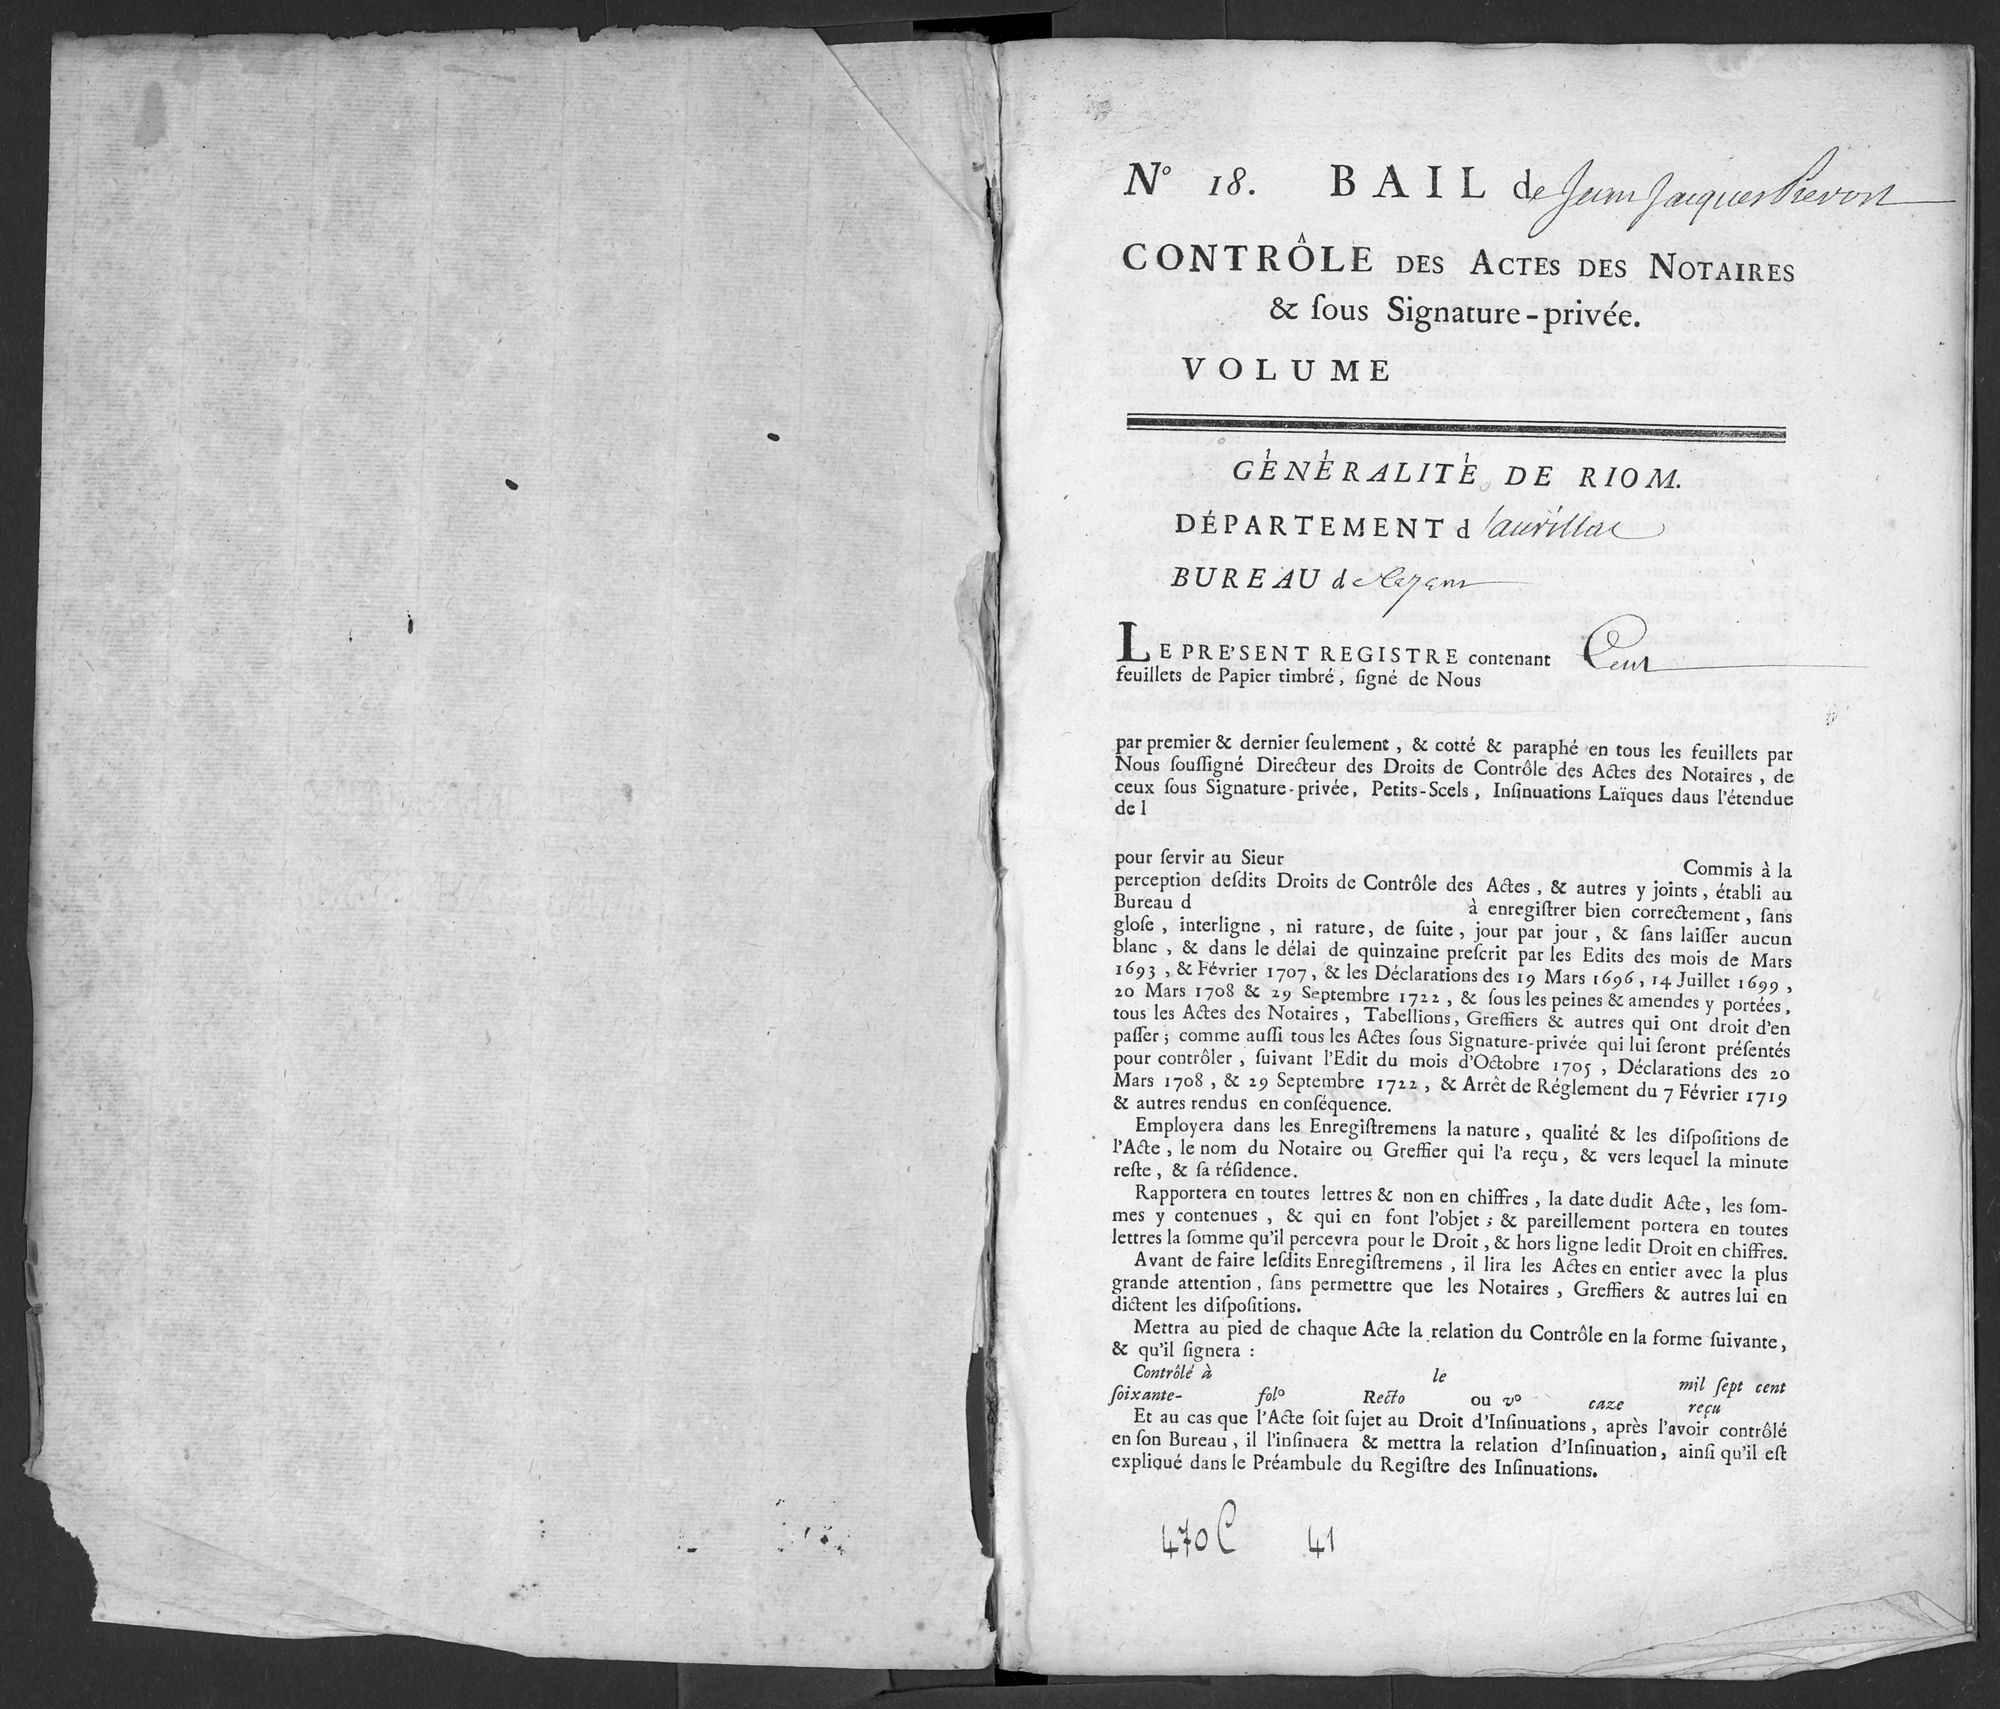 Nº 18. BAIL de Jean Jacques Prevost
CONTRÔLE DES ACTES DES NOTAIRES
& ſous Signature-privée.
VOLUME
GÉNÉRALITÉ DE RIOM.
DÉPARTEMENT d'aurillac
BUREAU de
LE PRE'SENT REGISTRE contenant Cent
feuillets de Papier timbré, ſigné de Nous
par premier & dernier ſeulement, & cotté & paraphé en tous les feuillets par
Nous ſouſſigné Directeur des Droits de Contrôle des Actes des Notaires, de
ceux ſous Signature-privée, Petits-Scels, Inſinuations Laïques daus l'étendue
de l
pour ſervir au Sieur Commis à la
perception deſdits Droits de Contrôle des Actes, & autres y joints, établi au
Bureau d à enregiſtrer bien correctement, ſans
gloſe, interligne, ni rature, de ſuite, jour par jour, & ſans laiſſer aucun
blanc, & dans le délai de quinzaine preſcrit par les Edits des mois de Mars
1693, & Février 1707, & les Déclarations des 19 Mars 1696, 14 Juillet 1699,
20 Mars 1708 & 29 Septembre 1722, & ſous les peines & amendes y portées,
tous les Actes des Notaires, Tabellions, Greffiers & autres qui ont droit d'en
paſſer; comme auſſi tous les Actes ſous Signature-privée qui lui ſeront préſentés
pour contrôler, ſuivant l'Edit du mois d'Octobre 1705, Déclarations des 20
Mars 1708, & 29 Septembre 1722, & Arrêt de Réglement du 7 Février 1719
& autres rendus en conſéquence.
Employera dans les Enregiſtremens la nature, qualité & les diſpoſitions de
l'Acte, le nom du Notaire ou Greffier qui l'a reçu, & vers lequel la minute
reſte, & ſa réſidence.
Rapportera en toutes lettres & non en chiffres, la date dudit Acte, les ſom-
mes y contenues, & qui en font l'objet; & pareillement portera en toutes
lettres la ſomme qu'il percevra pour le Droit, & hors ligne ledit Droit en chiffres.
Avant de faire leſdits Enregiſtremens, il lira les Actes en entier avec la plus
grande attention, ſans permettre que les Notaires, Greffiers & autres lui en
dictent les diſpoſitions.
Mettra au pied de chaque Acte la relation du Contrôle en la forme ſuivante,
& qu'il ſignera :
Contrôlé à le mil ſept cent
ſoixante- folº Recto ou vº caze reçu
Et au cas que l'Acte ſoit ſujet au Droit d'Inſinuations, après l'avoir contrôlé
en ſon Bureau, il l'inſinuera & mettra la relation d'Inſinuation, ainſi qu'il eſt
expliqué dans le Préambule du Regiſtre des Inſinuations.
470C 41